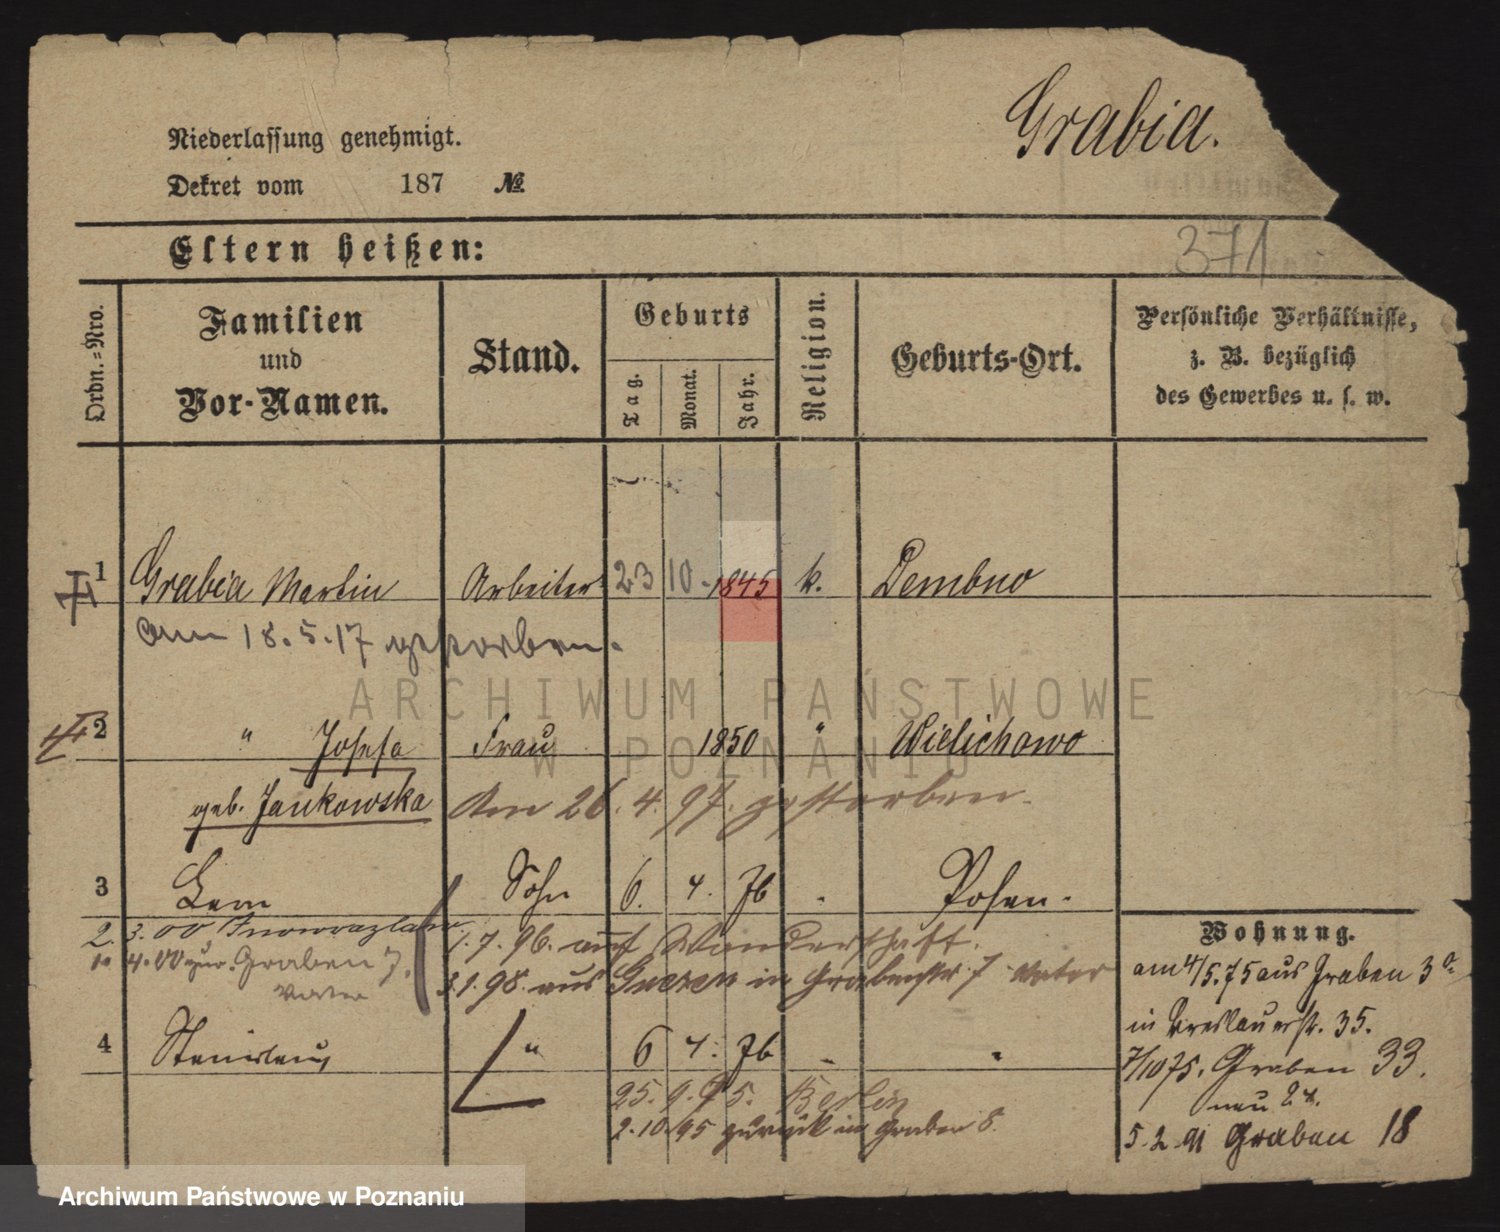 Grabia.
Niederlassung genehmigt.
Dekret vom 187 №
371
Eltern heißen:
Ordn.=Nro.
Familien
und
Vor-Namen.
Stand.
Geburts
Tag.
Monat.
Jahr.
Religion.
Geburts-Ort.
Persönliche Verhältnisse,
z. B. bezüglich
des Gewerbes u. s. w.
1 Grabia Martin Arbeiter 23 10. 1845 k. Dembno
am 18.5.17 gestorben.
2 " Josefa Frau 1850 " Wielichowo
geb. Jankowska Am 26.4.97. gestorben.
3 Sohn 6. 4. 76 Posen.
2. 3. 00 Inowrazlaw 1.7.96. auf Wanderschaft.
4.00 zur. Graben 7. 3.1.98. aus Gnesen in Grabenstr. 7 Vater
Vater
4 Stanislaus " 6 4. 76 "
25.9.95. Berlin
2.10.95 zurück in Graben 8.
Wohnung.
am 4/5.75 aus Graben 3a
in Breslauerstr. 35.
7/10 75. Graben 33.
neu
5.2.91 Graben 18
ARCHIWUM PAŃSTWOWE
W POZNANIU
Archiwum Państwowe w Poznaniu